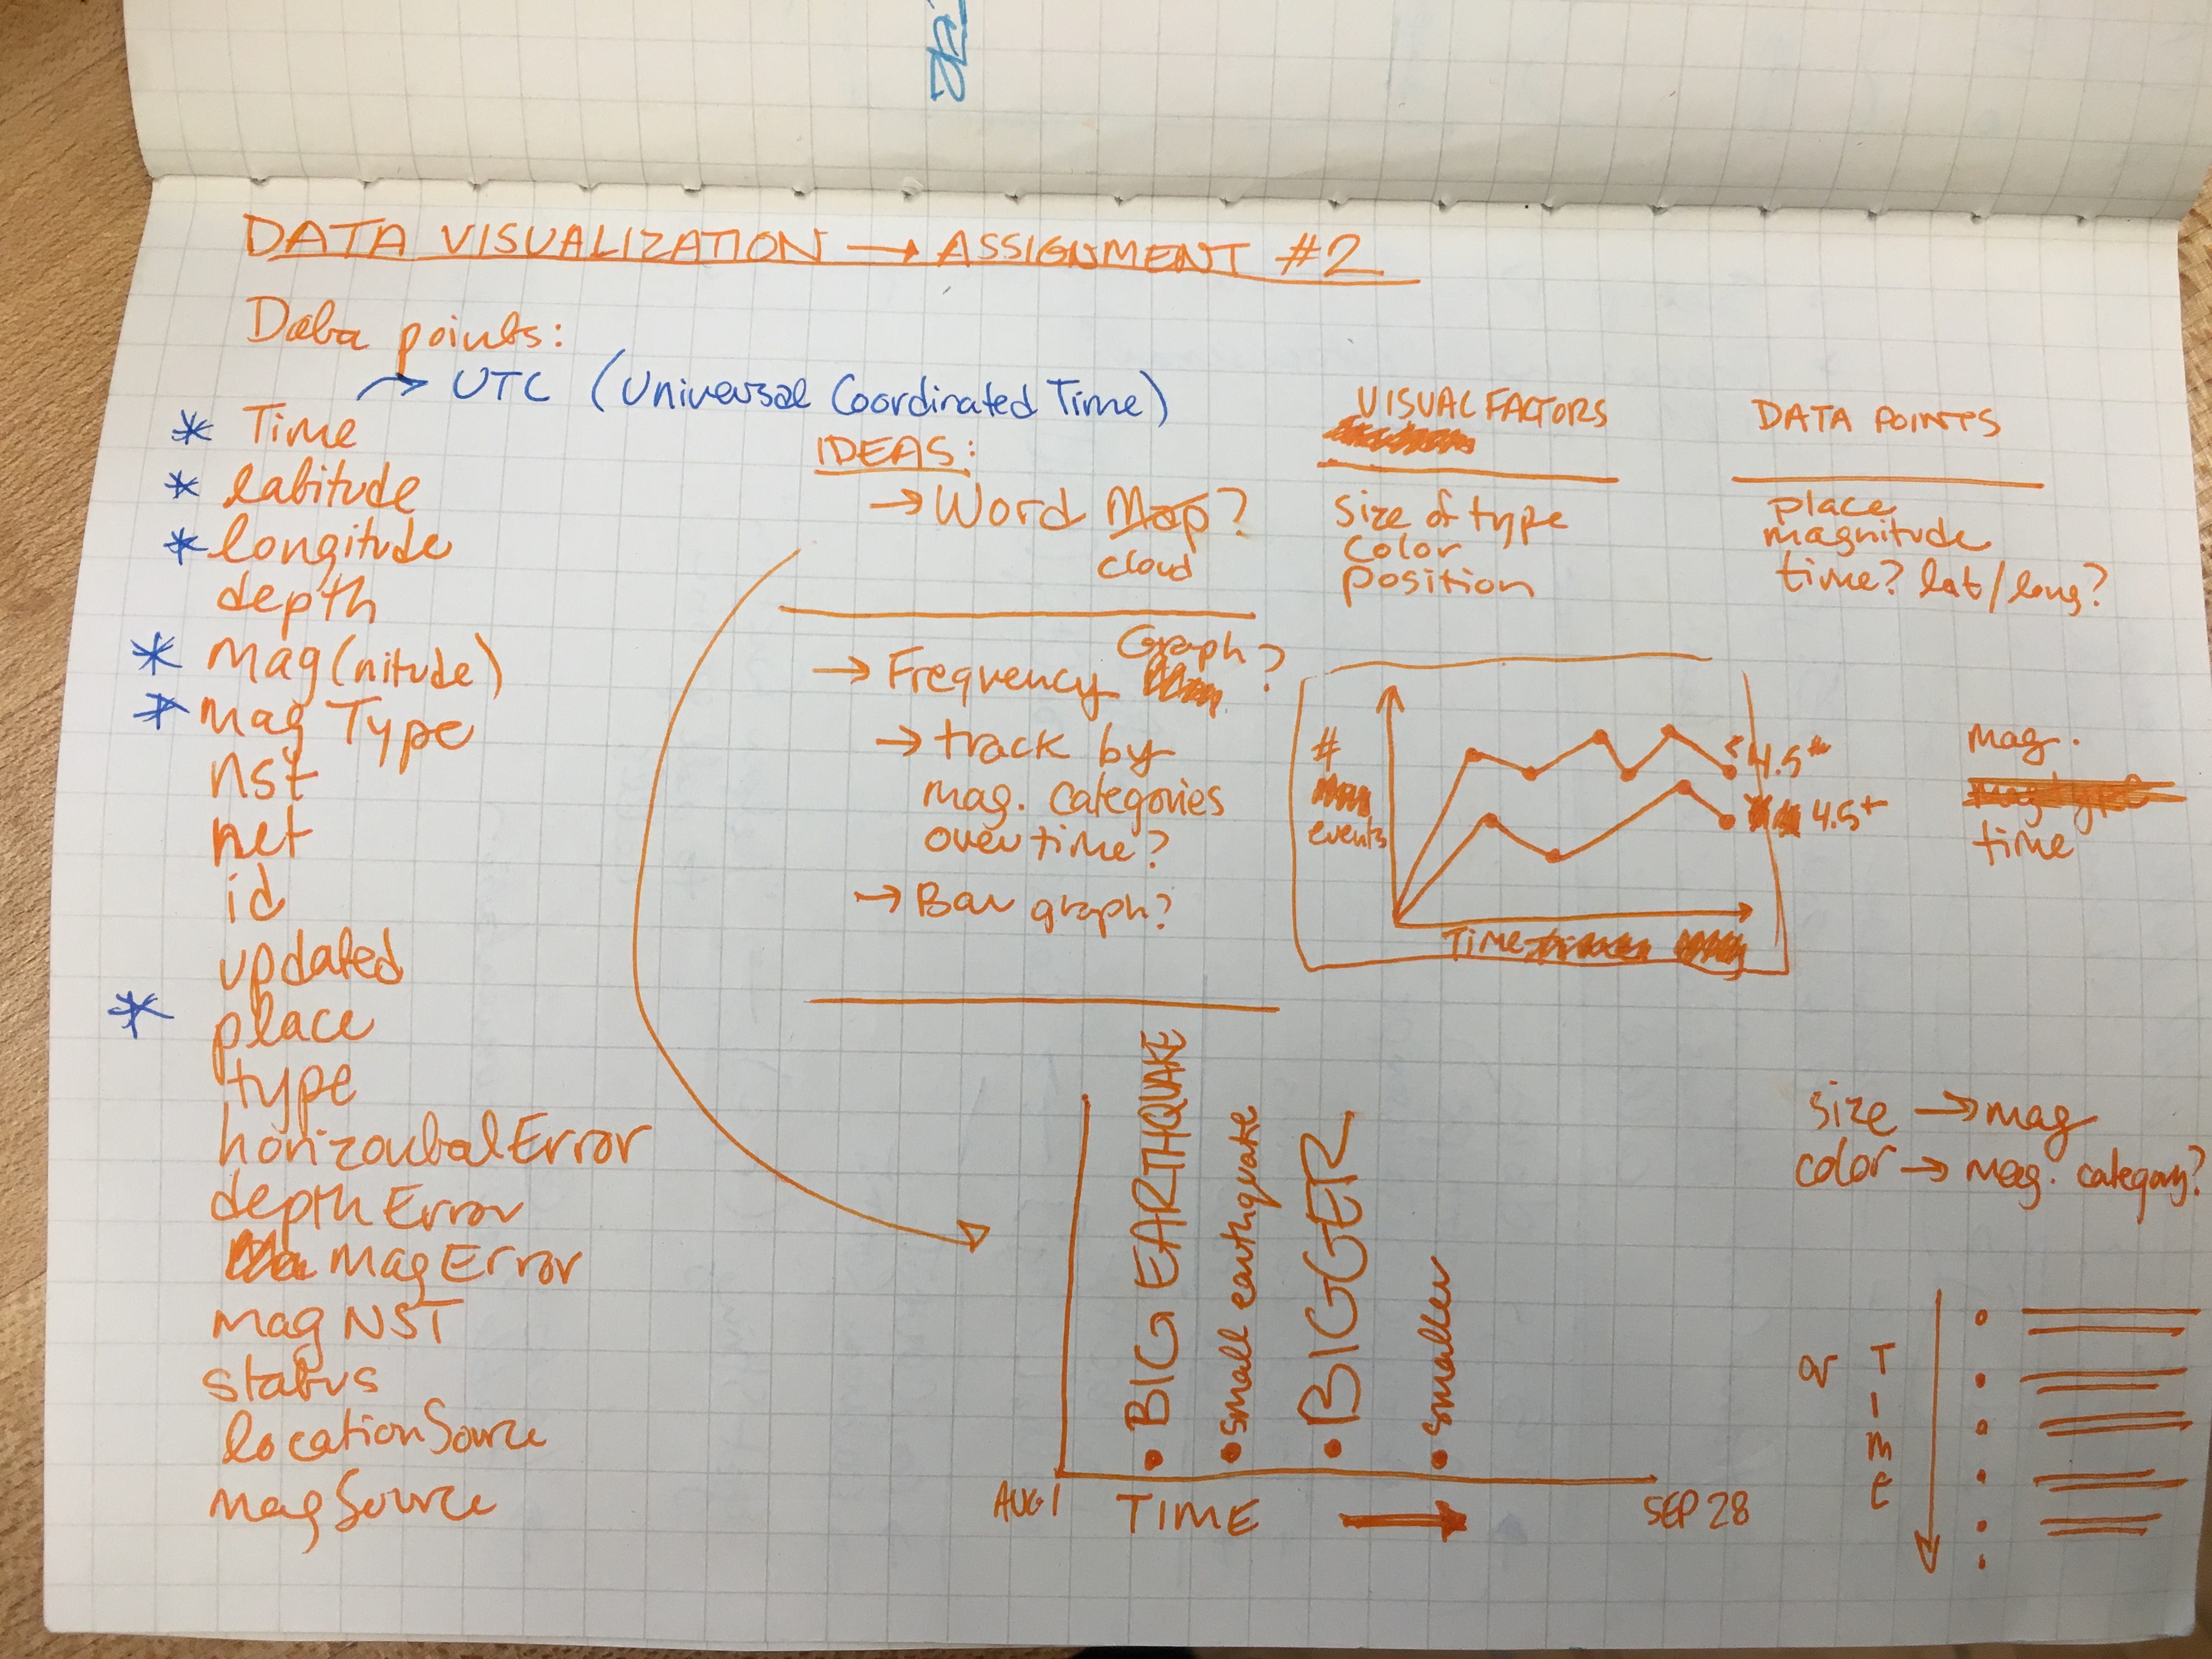 DATA VISUALIZATION → ASSIGNMENT #2
Data points:
→ UTC (Universal Coordinated Time)
* Time
* latitude
* longitude
depth
* Mag(nitude)
* Mag Type
nst
net
id
updated
* place
type
horizontalError
depthError
MagError
MagNST
status
locationSource
MagSource
IDEAS:
→ Word Map?
cloud
→ Frequency Graph?
→ track by
mag. categories
over time?
→ Bar graph?
VISUAL FACTORS
size of type
color
position
DATA POINTS
place
magnitude
time? lat/long?
#
events
<4.5
4.5+
Time
mag.
time
BIG EARTHQUAKE
small earthquake
BIGGER
smaller
AUG 1
TIME →
SEP 28
size → mag
color → mag. category?
or
TIME